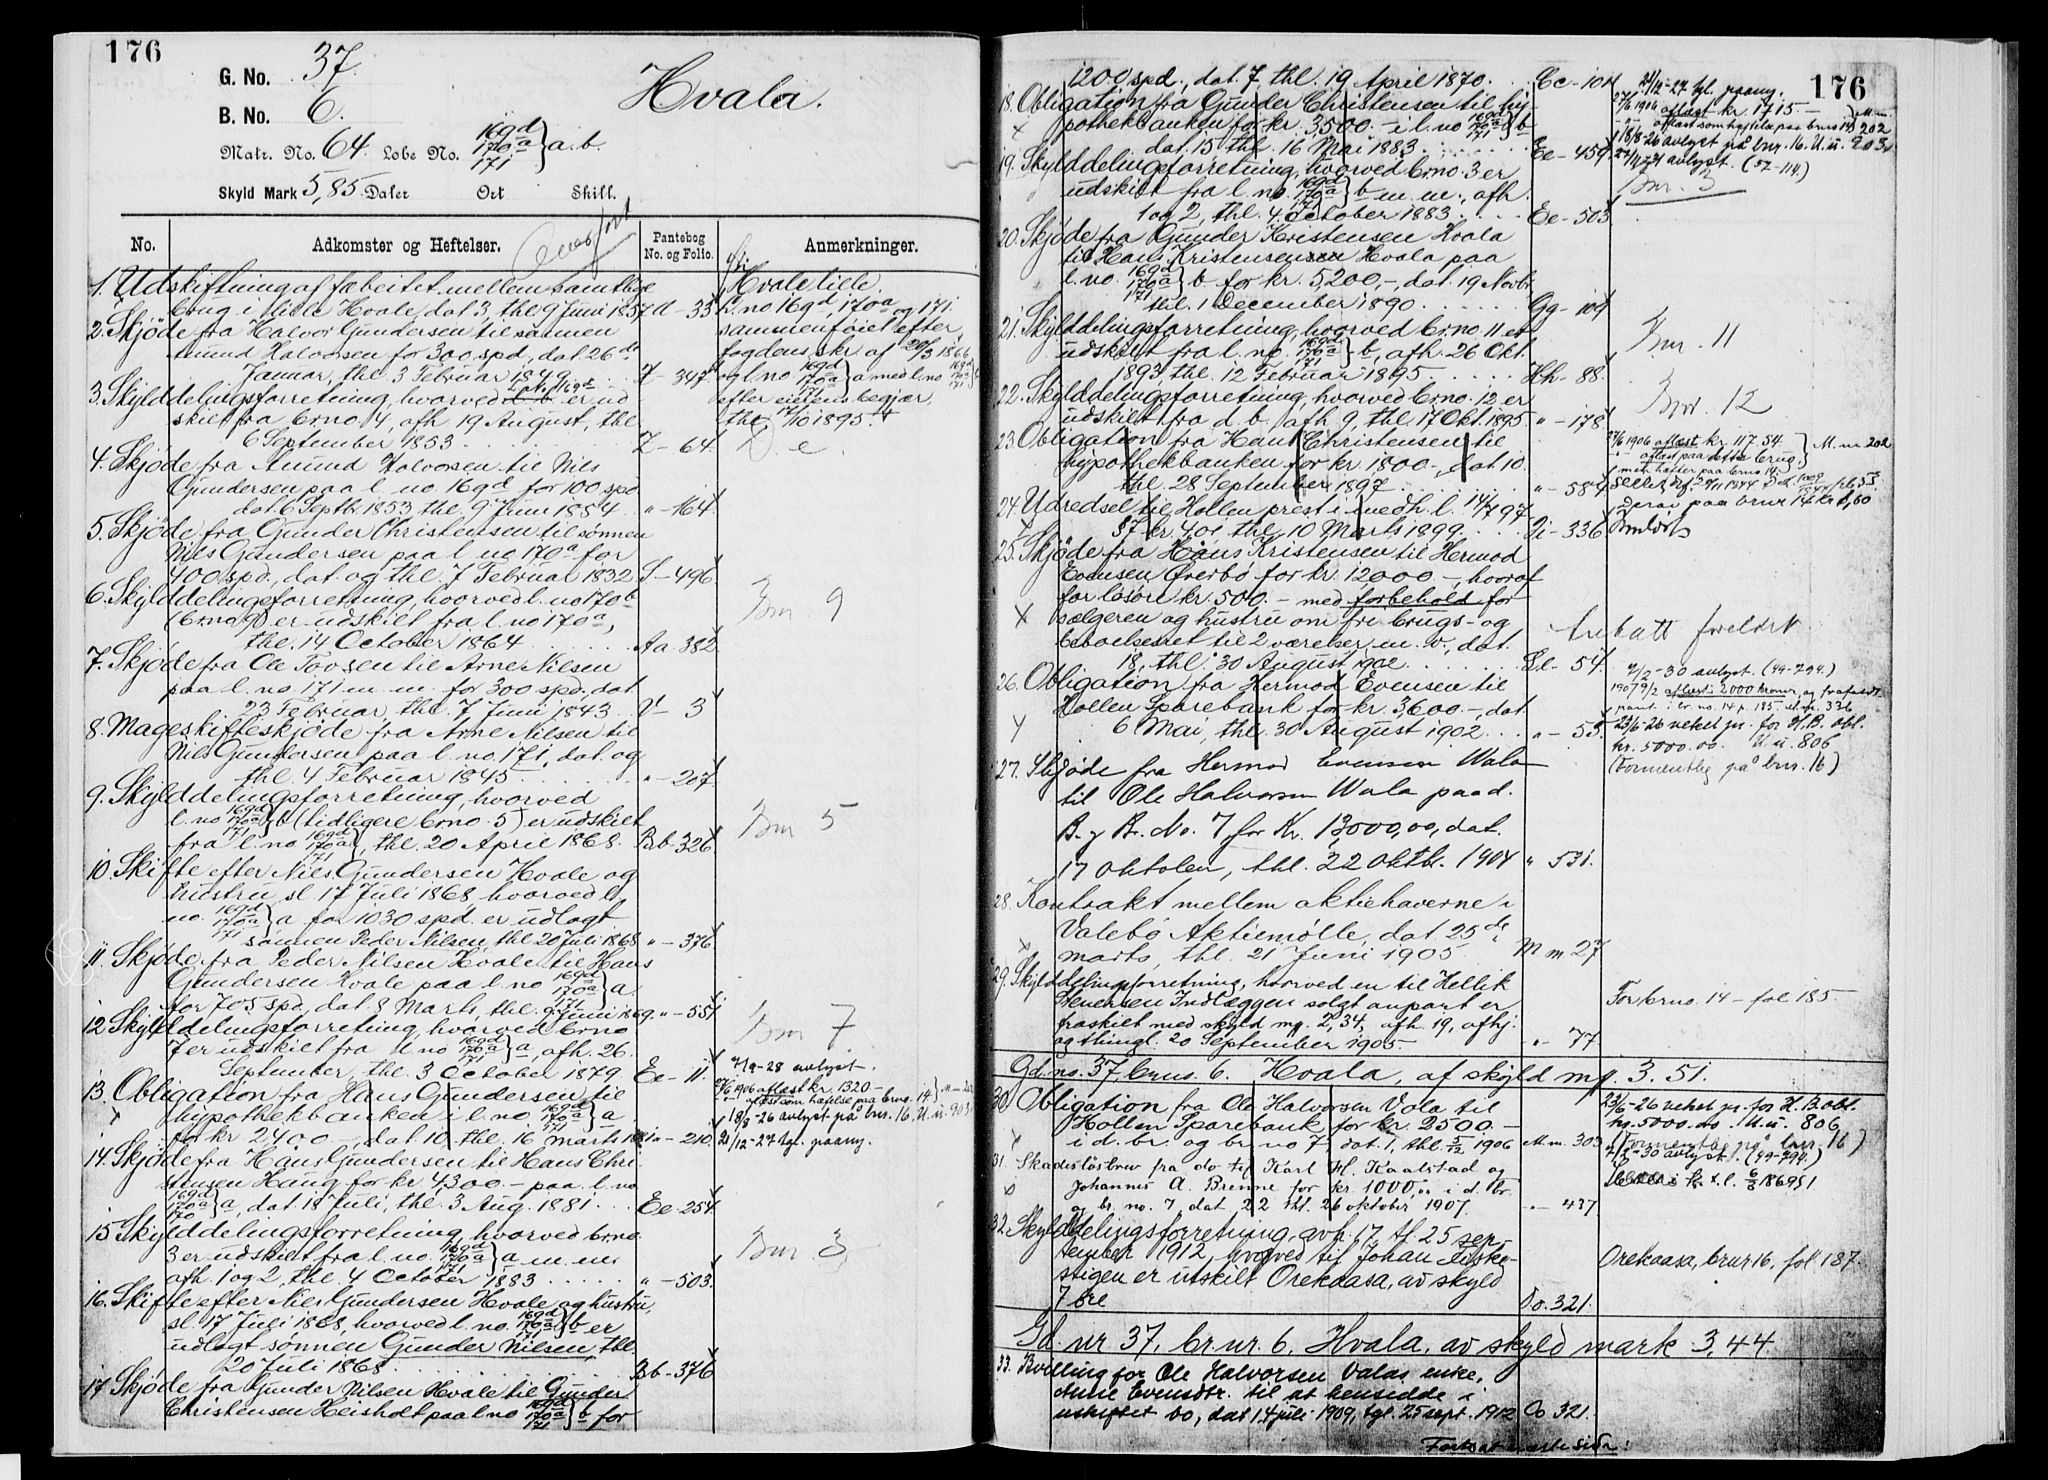 176
G. No. 37.
B. No. 6.
Hvala.
Matr. No. 64. Løbe No. 169d 170a 171 } a. b.
Skyld Mark 5,85. Daler Ort Skill.
No. Adkomster og Heftelser. Pantebog No. og Folio. Anmerkninger.
1. Udskiftning af fæbeitet mellem samtlige
brug i lille Hvale, dat. 3, thl. 9 Juni 1857 - 33
2. Skjøde fra Halvor Gundersen til sønnen
Amund Halvorsen for 300 spd., dat. 26de
Januar, thl. 3 Februar 1849 - 347
3. Skylddelingsforretning, hvorved er ud
skilt fra brno 4, afh. 19 August, thl.
6 September 1853 Z - 64
4. Skjøde fra Amund Halvorsen til Nils
Gundersen paa l. no 169d for 100 spd
dat. 6 Septb. 1853 thl. 9 Juni 1854 " - 164
5. Skjøde fra Gunder Christensen til sønnen
Nils Gundersen paa l. no 170a for
400 spd., dat. og thl. 7 Februar 1832 S - 496
6. Skylddelingsforretning, hvorved l. no 170b
(brno 9) er udskilt fra l. no 170a,
thl. 14 October 1864 Aa 382
7. Skjøde fra Ole Tovsen til Arne Nilsen
paa l. no. 171 m. m. for 300 spd., dat.
23 Februar, thl. 7 Juni 1843 V - 3
8. Mageskifteskjøde fra Arne Nilsen til
Nils Gundersen paa l. no. 171, dat. og
thl. 4 Februar 1845 " - 207
9. Skylddelingsforretning, hvorved
l. no 169d 170a 171 } b (tidligere brno 5) er udskilt
fra l. no 169d 170a 171 }, thl. 20 April 1868. Bb - 326
10. Skifte efter Nils Gundersen Hvale og
hustru sl. 17 Juli 1868, hvorved l.
no. 169d 170a 171 } a for 1030 spd. er udlagt
sønnen Peder Nilsen, thl. 20 Juli 1868 " - 376
11. Skjøde fra Peder Nilsen Hvale til Hans
Gundersen Hvale paa l. no 169d 170a 171 } a
for 705 spd., dat. 8 Marts, thl. 9 Juni 1869. " - 551
12. Skylddelingsforretning, hvorved brno
7 er udskilt fra l. no 169d 170a 171 } a, afh. 26.
September, thl. 3 October 1879. Ee - 11.
13. Obligation fra Hans Gundersen til
hypothekbanken i l. no. 169d 170a 171 } a
for kr 2400 -, dat. 10, thl. 16 marts - 210.
14. Skjøde fra Hans Gundersen til Hans Chri
stensen Haug for kr 4300. - paa l. no
169d 170a 170 } a, dat. 18 Juli, thl. 3 Aug. 1881 Ee - 254
15. Skylddelingsforretning, hvorved brno
3 er udskilt fra l. no 169d 170a 171 } a m. m.
afh. 1 og 2, thl. 4 October 1883 " - 503
16. Skifte efter Nils Gundersen Hvale og hustru,
sl. 17 Juli 1868, hvorved l. no. 169d 170a 171 } b er
udlagt sønnen Gunder Nilsen, thl.
20 Juli 1868 Bb - 376
17. Skjøde fra Gunder Nilsen Hvale til Gunder
Christensen Heisholt paa l no 169d 170a 171 } b for
Hvale lille.
L. no 169d, 170a og 171
sammenføiet efter
fogdens skr. af 20/3 1866
og l. no 169d 170a 171 } a med l. no
efter eierens begjær.
thl. 17/10 1895.
D. e.
Bnr 9
Bnr 5
Bnr 7
7/9-28 avlyst.
27/6 1906 aflæst kr. 1320 -
18/8-26 avlyst på bnr. 16. U. u. 903
21/12-27 tgl. paany.
Bnr 3
176
1200 spd., dat. 7 thl. 19 April 1870. Cc - 101
18. Obligation fra Gunder Christensen til hy-
pothekbanken for kr. 3500. - i l. no 169d 170a 171 } b
dat. 15 thl. 16 Mai 1883 Ee - 459
19. Skylddelingsforretning, hvorved brno. 3 er
udskilt fra l. no. 169d 170a 171 } b m. m., afh.
1 og 2, thl. 4 October 1883 Ee - 503
20. Skjøde fra Gunder Kristensen Hvala
til Hans Kristensen Hvala paa
l. no. 169d 170a 171 } b for kr. 5,200,-, dat. 19 Novbr.
thl. 1 December 1890 Gg - 109
21. Skylddelingsforretning, hvorved brno. 11 er
udskilt fra l. no. 169d 170a 171 } b, afh. 26 Okt.
1893, thl. 12 Februar 1895 Hh - 88.
22. Skylddelingsforretning, hvorved brno. 12 er
udskilt fra d. b., afh. 9, thl. 17 Okt. 1895 " - 178
23. Obligation fra Hans Christensen til
hypothekbanken for kr 1800 -, dat. 10.
thl. 28 September 1897 " - 584
24. Udredsel til Hollen prest i medh. l. 14/7 97
§ 7 kr. 4,01, thl. 10 Marts 1899 Ii - 336
25. Skjøde fra Hans Kristensen til Hermod
Evensen Øverbø for kr. 12000. -, hvoraf
for løsøre kr. 500. - med forbehold for
sælgeren og hustru om fri brugs- og
beboelsesret til 2 værelser m. v., dat.
18, thl. 30 August 1902 Ll - 54
26. Obligation fra Hermod Evensen til
Hollen Sparebank for kr. 3,600. -, dat.
6 Mai, thl. 30 August 1902 " - 55
27. Skjøde fra Hermod Evensen Wala
til Ole Halvorsen Wala paa d.
B. og Br. No. 7 for Kr. 13000,00, dat.
17 oktober, thl. 22 oktbr. 1904 " 531.
28. Kontrakt mellem aktiehaverne i
Valebø Aktiemølle, dat 25de
marts, thl. 21 Juni 1905 M m 27
29. Skylddelingsforretning, hvorved en til Hellik
Evensen Indlæggen solgt anpart er
fraskilt med skyld mp. 2,34, afh. 19, afhj.
og thingl. 20 September 1905. " - 77
Gd. no. 37, brus. 6. Hvala, af skyld mp. 3.51.
30. Obligation fra Ole Halvorsen Vala til
Hollen Sparebank for kr. 2500. -
i d. br. og br. no 7, dat. 1, thl. 5/12 1906 M m. 303
31. Skadesløsbrev fra do til Karl H. Kaalstad og
Johannes A. Brenne for kr. 1000,00 i d. br.
og br. no. 7, dat 22 thl. 26 oktober 1907. " - 437
32. Skylddelingsforretning, avh. 17, tl. 25 sep-
tember 1912, hvorved til Johan Fiske-
stigen er utskilt Orekaasa, av skyld
7 øre Oo. 321.
Gd. nr 37, br. nr. 6, Hvala, av skyld mark 3,44
33. Bvilling for Ole Halvorsen Valas enke,
Anne Evensdtr. til at hensidde i
uskiftet bo, dat 14 juli 1909, tgl. 25 sept. 1912 Oo 321.
Fortsat næste side!
21/12-27 tgl. paany.
27/6 1906 aflæst kr. 1715. -
18/8-26 avlyst på bnr. 16. U. u. 903.
avlyst. (57-114.)
Bnr. 3
Bnr. 11
Bnr. 12
27/6 1906 aflæst kr. 117.54
aflæst paa dette brug } M. m 202
men hefter paa brno 14.
Derav paa bnr 14 kr 1,60
Indløst
Antatt foreldet
7/2-30 avlyst. (49-794.)
1907 9/2 aflæst 2000 kroner, og frafaldt
pant i br. no. 14 p. 185 M. m. 336
23/6-26 veket pr. for H. B. obl.
kr. 5000.00. U. u. 806
(Formentlig på bnr. 16)
For brno. 14 - fol 185.
23/6-26 veket pr. for H. B obl.
kr. 5000.00. U. u. 806
(Formentlig på bnr. 16)
7/2-30 avlyst. (49-794.)
Orekaasa, brnr 16, fol 187.